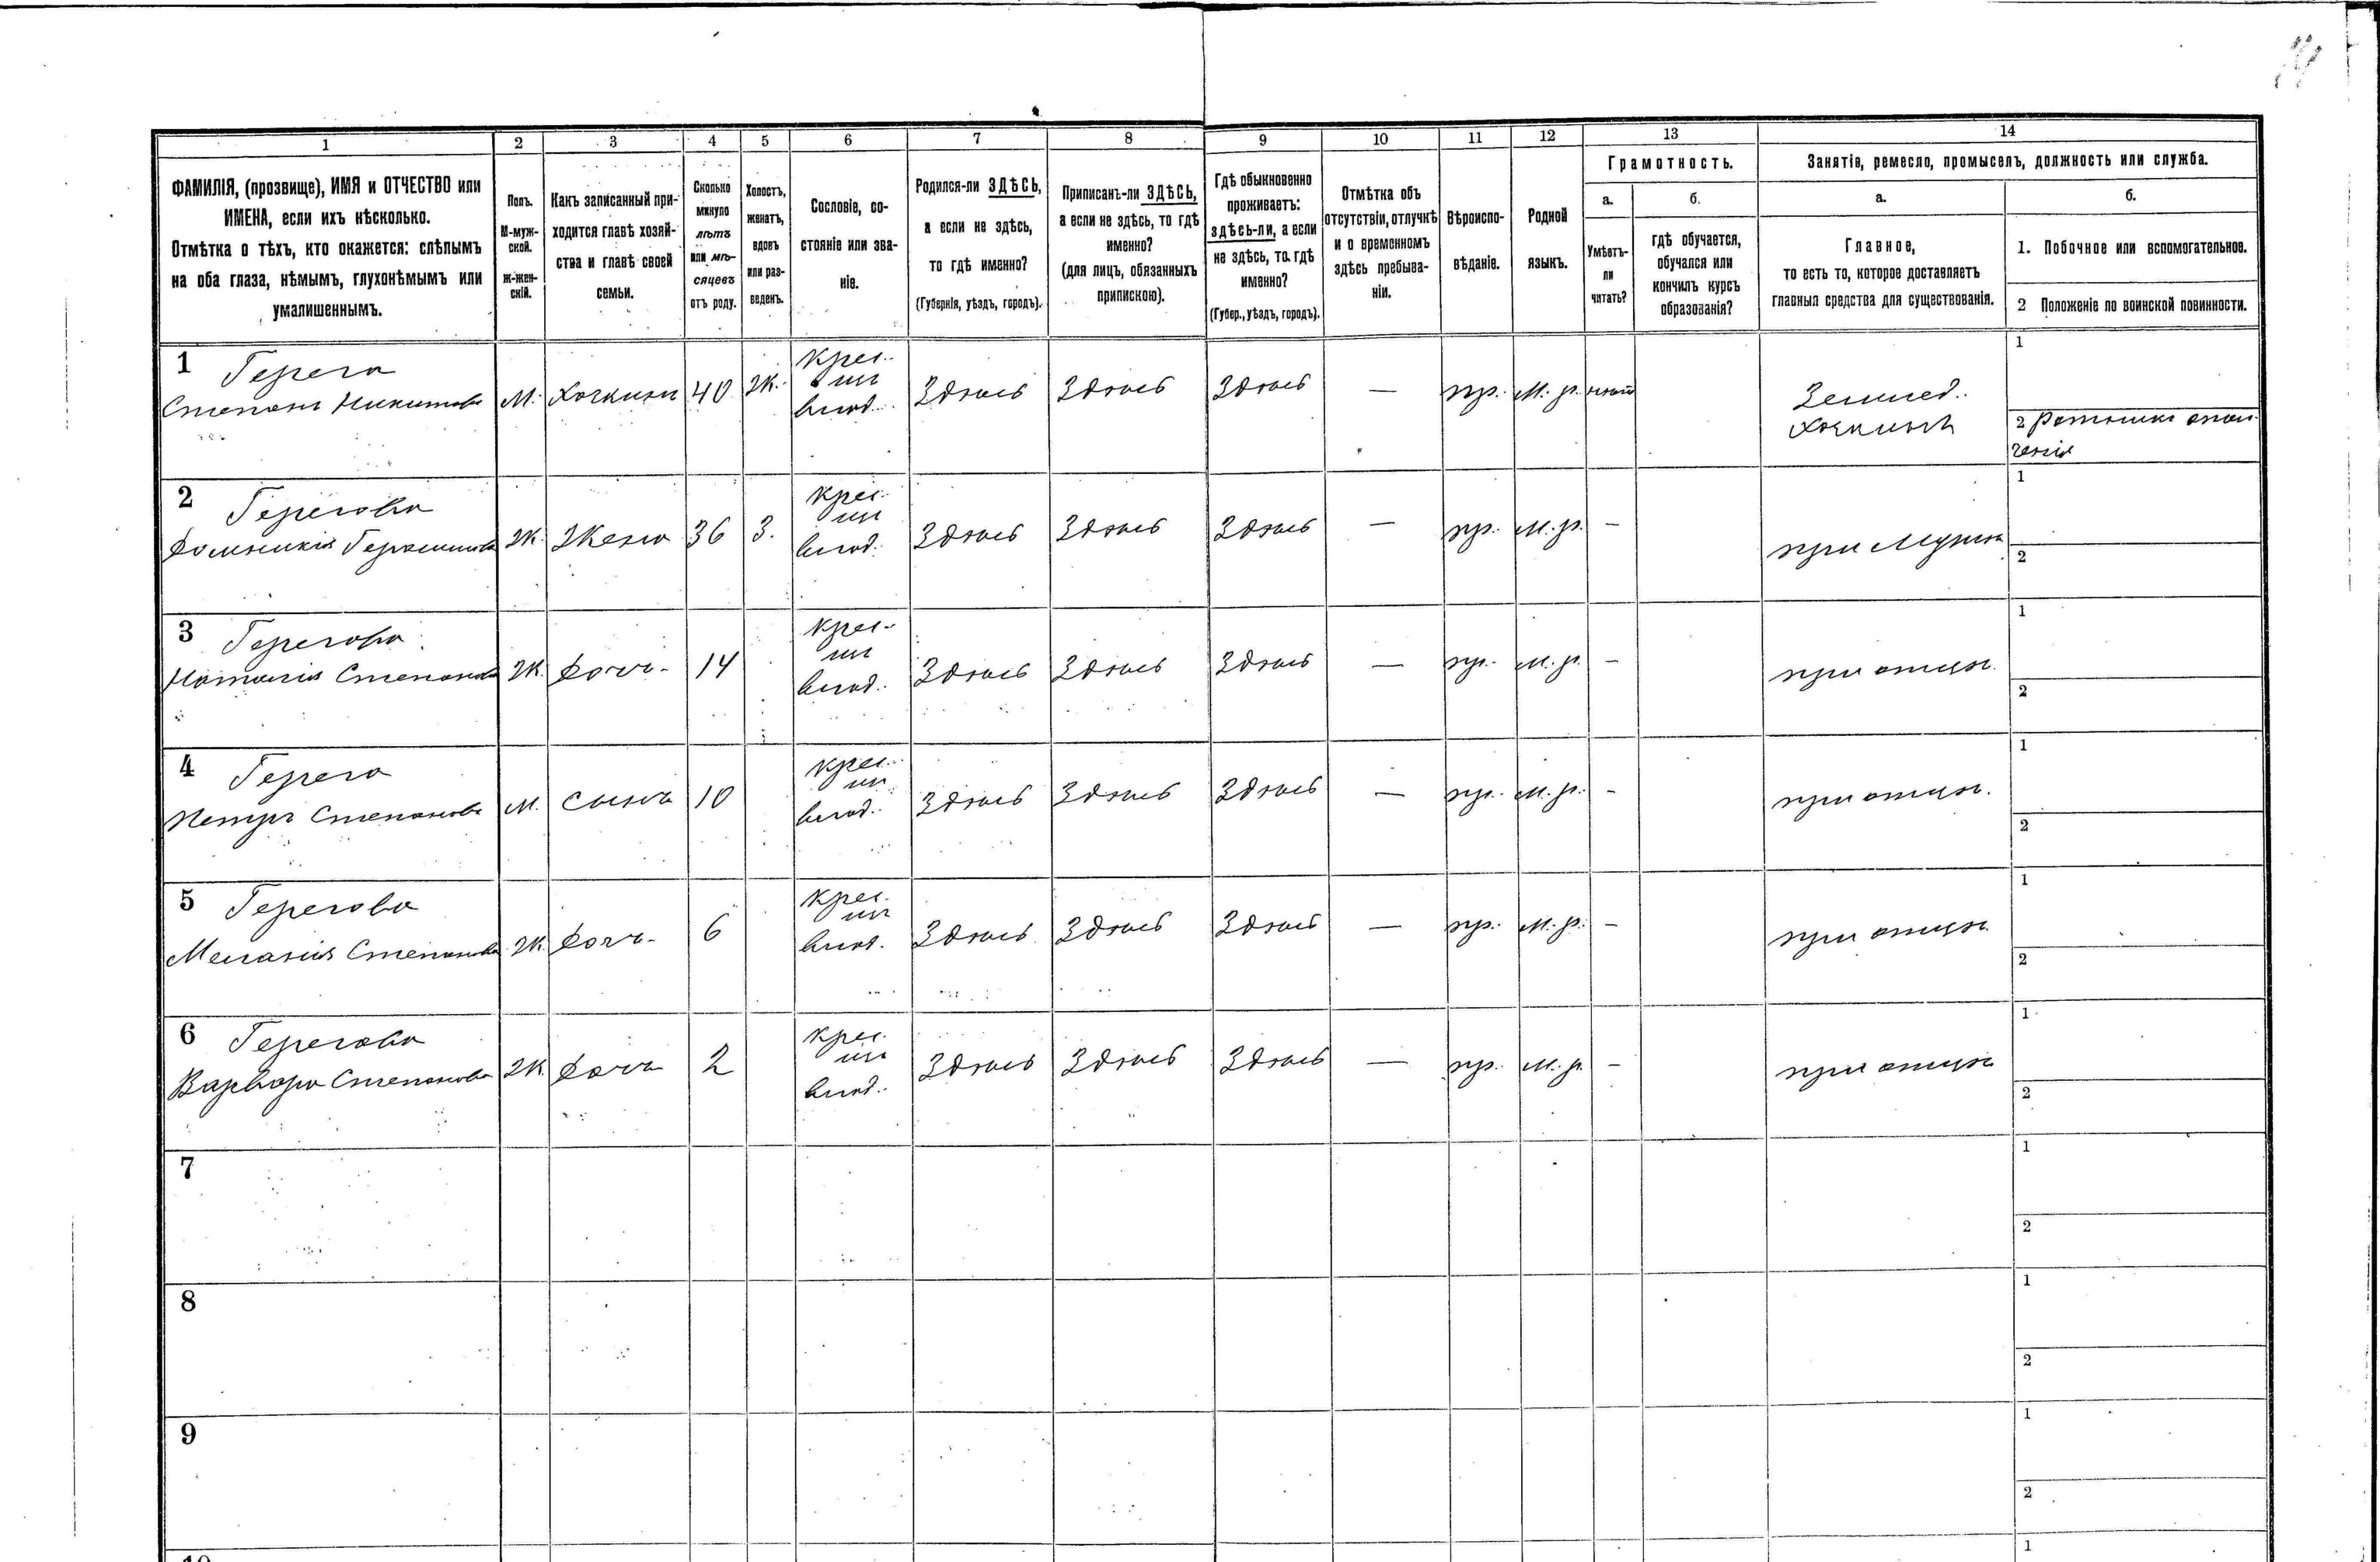 1 2 3 4 5 6 7 8 9 10 11 12 13 14
ФАМИЛІЯ, (прозвище), ИМЯ и ОТЧЕСТВО или
ИМЕНА, если ихъ нѣсколько.
Отмѣтка о тѣхъ, кто окажется: слѣпымъ
на оба глаза, нѣмымъ, глухонѣмымъ или
умалишеннымъ.
Полъ.
М-муж-
ской.
Ж-жен-
скій.
Какъ записанный при-
ходится главѣ хозяй-
ства и главѣ своей
семьи.
Сколько
минуло
лѣтъ
или мѣ-
сяцевъ
отъ роду.
Холостъ,
женатъ,
вдовъ
или раз-
веденъ.
Сословіе, со-
стояніе или зва-
ніе.
Родился-ли ЗДѢСЬ,
а если не здѣсь,
то гдѣ именно?
(Губернія, уѣздъ, городъ).
Приписанъ-ли ЗДѢСЬ,
а если не здѣсь, то гдѣ
именно?
(для лицъ, обязанныхъ
припискою).
Гдѣ обыкновенно
проживаетъ:
здѣсь-ли, а если
не здѣсь, то гдѣ
именно?
(Губер., уѣздъ, городъ).
Отмѣтка объ
отсутствіи, отлучкѣ
и о временномъ
здѣсь пребыва-
ніи.
Вѣроиспо-
вѣданіе.
Родной
языкъ.
Грамотность.
а.
Умѣетъ-
ли
читать?
б.
гдѣ обучается,
обучался или
кончилъ курсъ
образованія?
Занятіе, ремесло, промыселъ, должность или служба.
а.
Главное,
то есть то, которое доставляетъ
главныя средства для существованія.
б.
1. Побочное или вспомогательное.
2 Положеніе по воинской повинности.
1 Герега
Степанъ Никитовъ
М. Хозяинъ 40 Ж.
Крес.
изъ
влад.
Здѣсь Здѣсь Здѣсь — пр. м.р. нѣтъ
Землед.
Хозяинъ
1
2 Ратникъ опол-
ченія
2 Герегова
Домникія Герасимова
Ж. Жена 36 З.
Крес.
изъ
влад.
Здѣсь Здѣсь Здѣсь — пр. м.р. —
при мужѣ
1
2
3 Герегова
Наталія Степанова
Ж. Дочь 14
Крес.
изъ
влад.
Здѣсь Здѣсь Здѣсь — пр. м.р. —
при отцѣ.
1
2
4 Герега
Петръ Степановъ
М. Сынъ 10
Крес.
изъ
влад.
Здѣсь Здѣсь Здѣсь — пр. м.р. —
при отцѣ.
1
2
5 Герегова
Меланія Степанова
Ж. Дочь 6
Крес.
изъ
влад.
Здѣсь Здѣсь Здѣсь — пр. м.р. —
при отцѣ.
1
2
6 Герегова
Варвара Степанова
Ж. Дочь 2
Крес.
изъ
влад.
Здѣсь Здѣсь Здѣсь — пр. м.р. —
при отцѣ
1
2
7
1
2
8
1
2
9
1
2
1